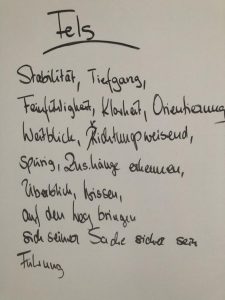 Fels
Stabilität, Tiefgang,
Feinfühligkeit, Klarheit, Orientierung
Weitblick, Richtungsweisend,
spürig, Zushänge erkennen,
Überblick, Wissen,
auf den Weg bringen
sich seiner Sache sicher sein
Führung